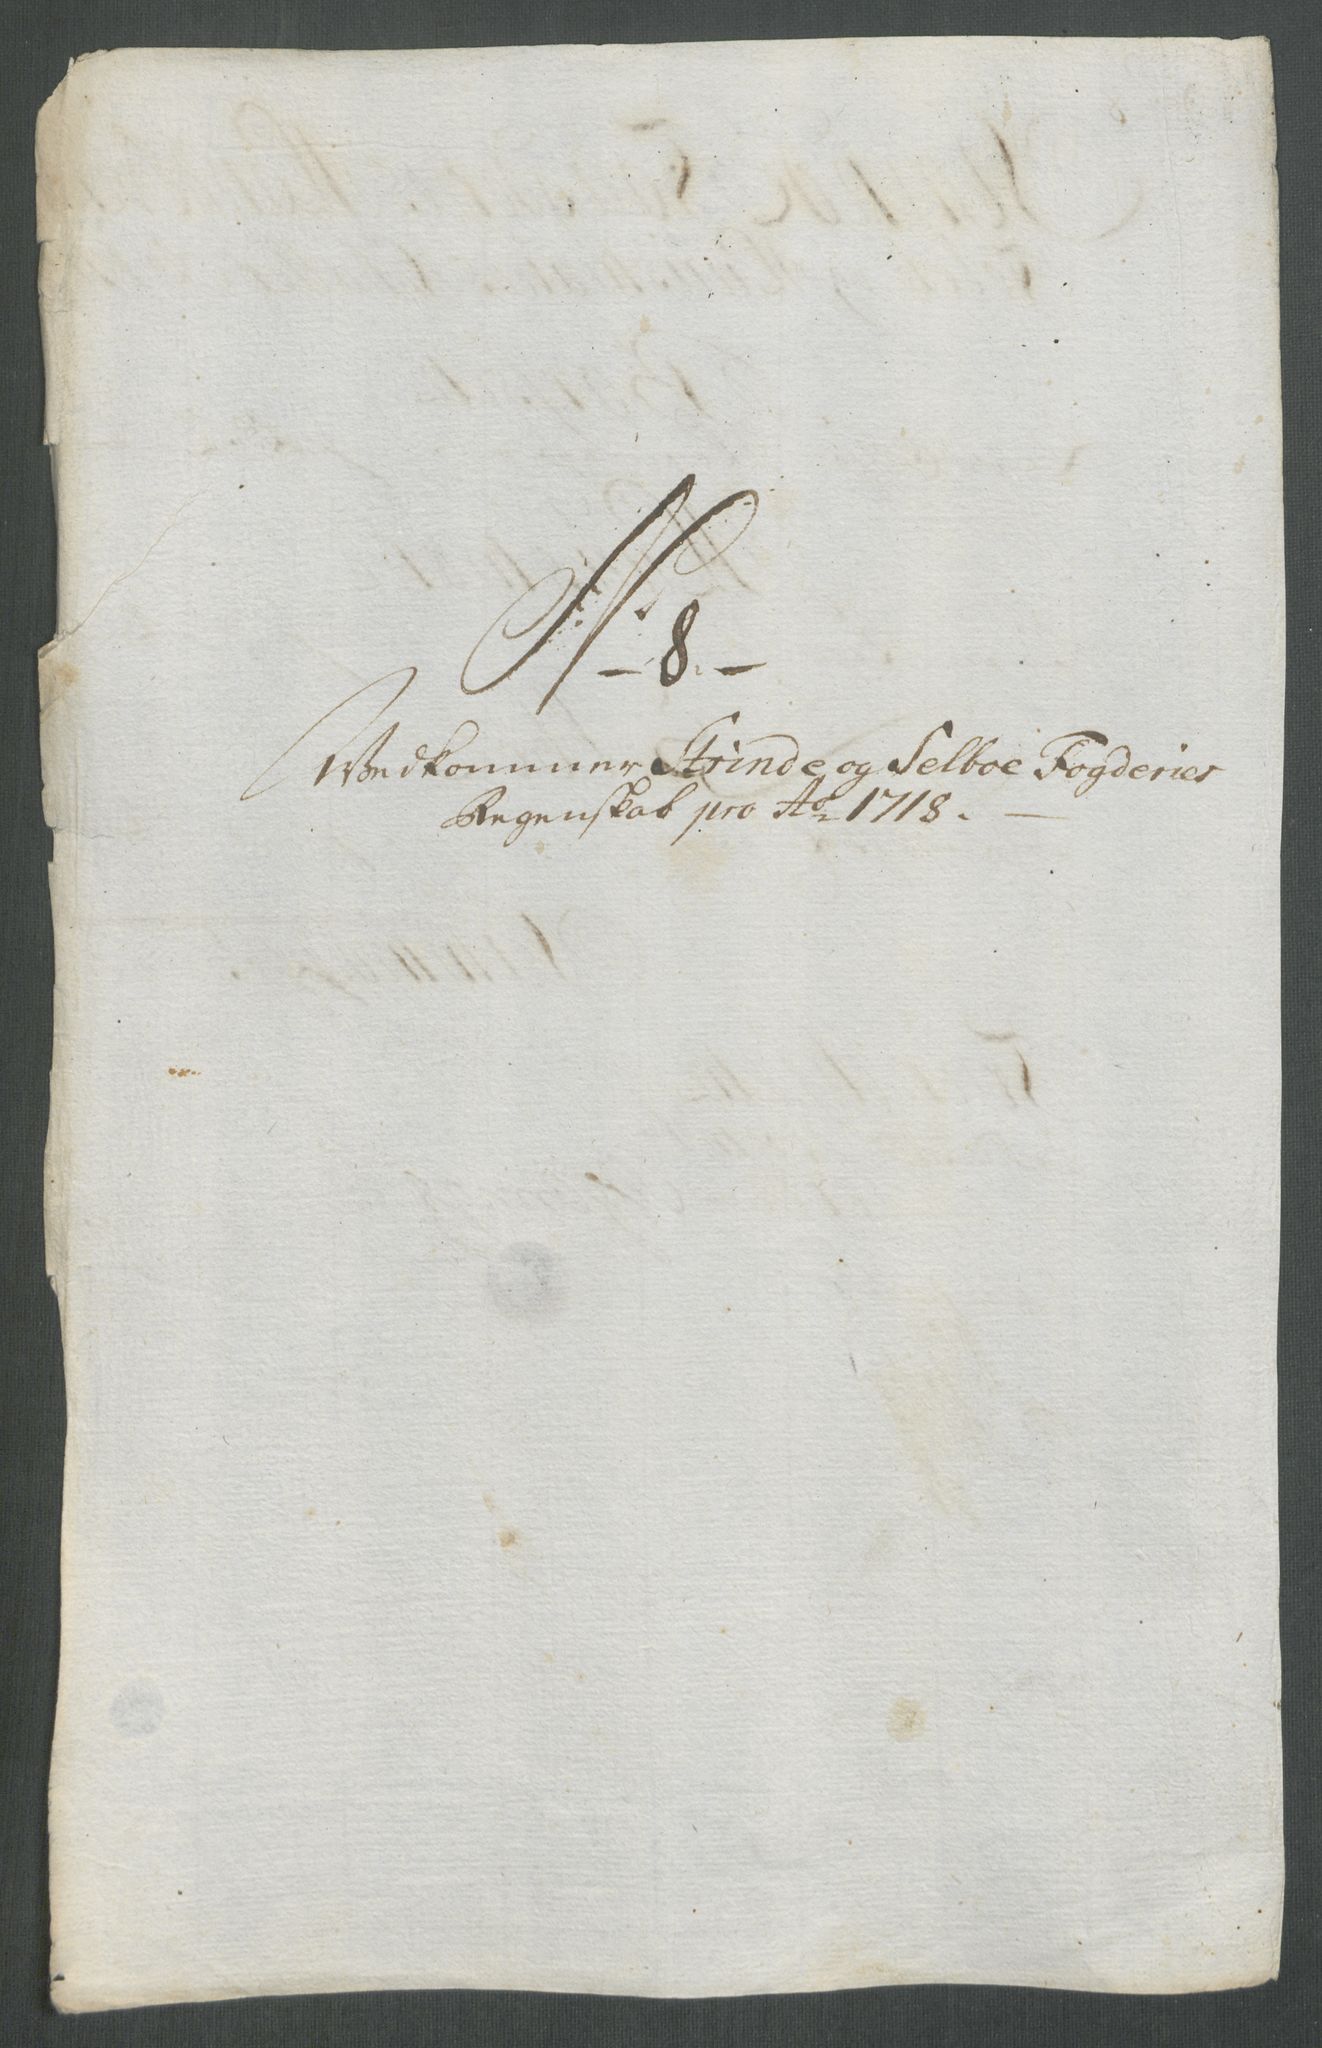 N
- 8. -
Vedkommer Strinde og Selboe Fogderier
Regenskab pro Ao 1718. -